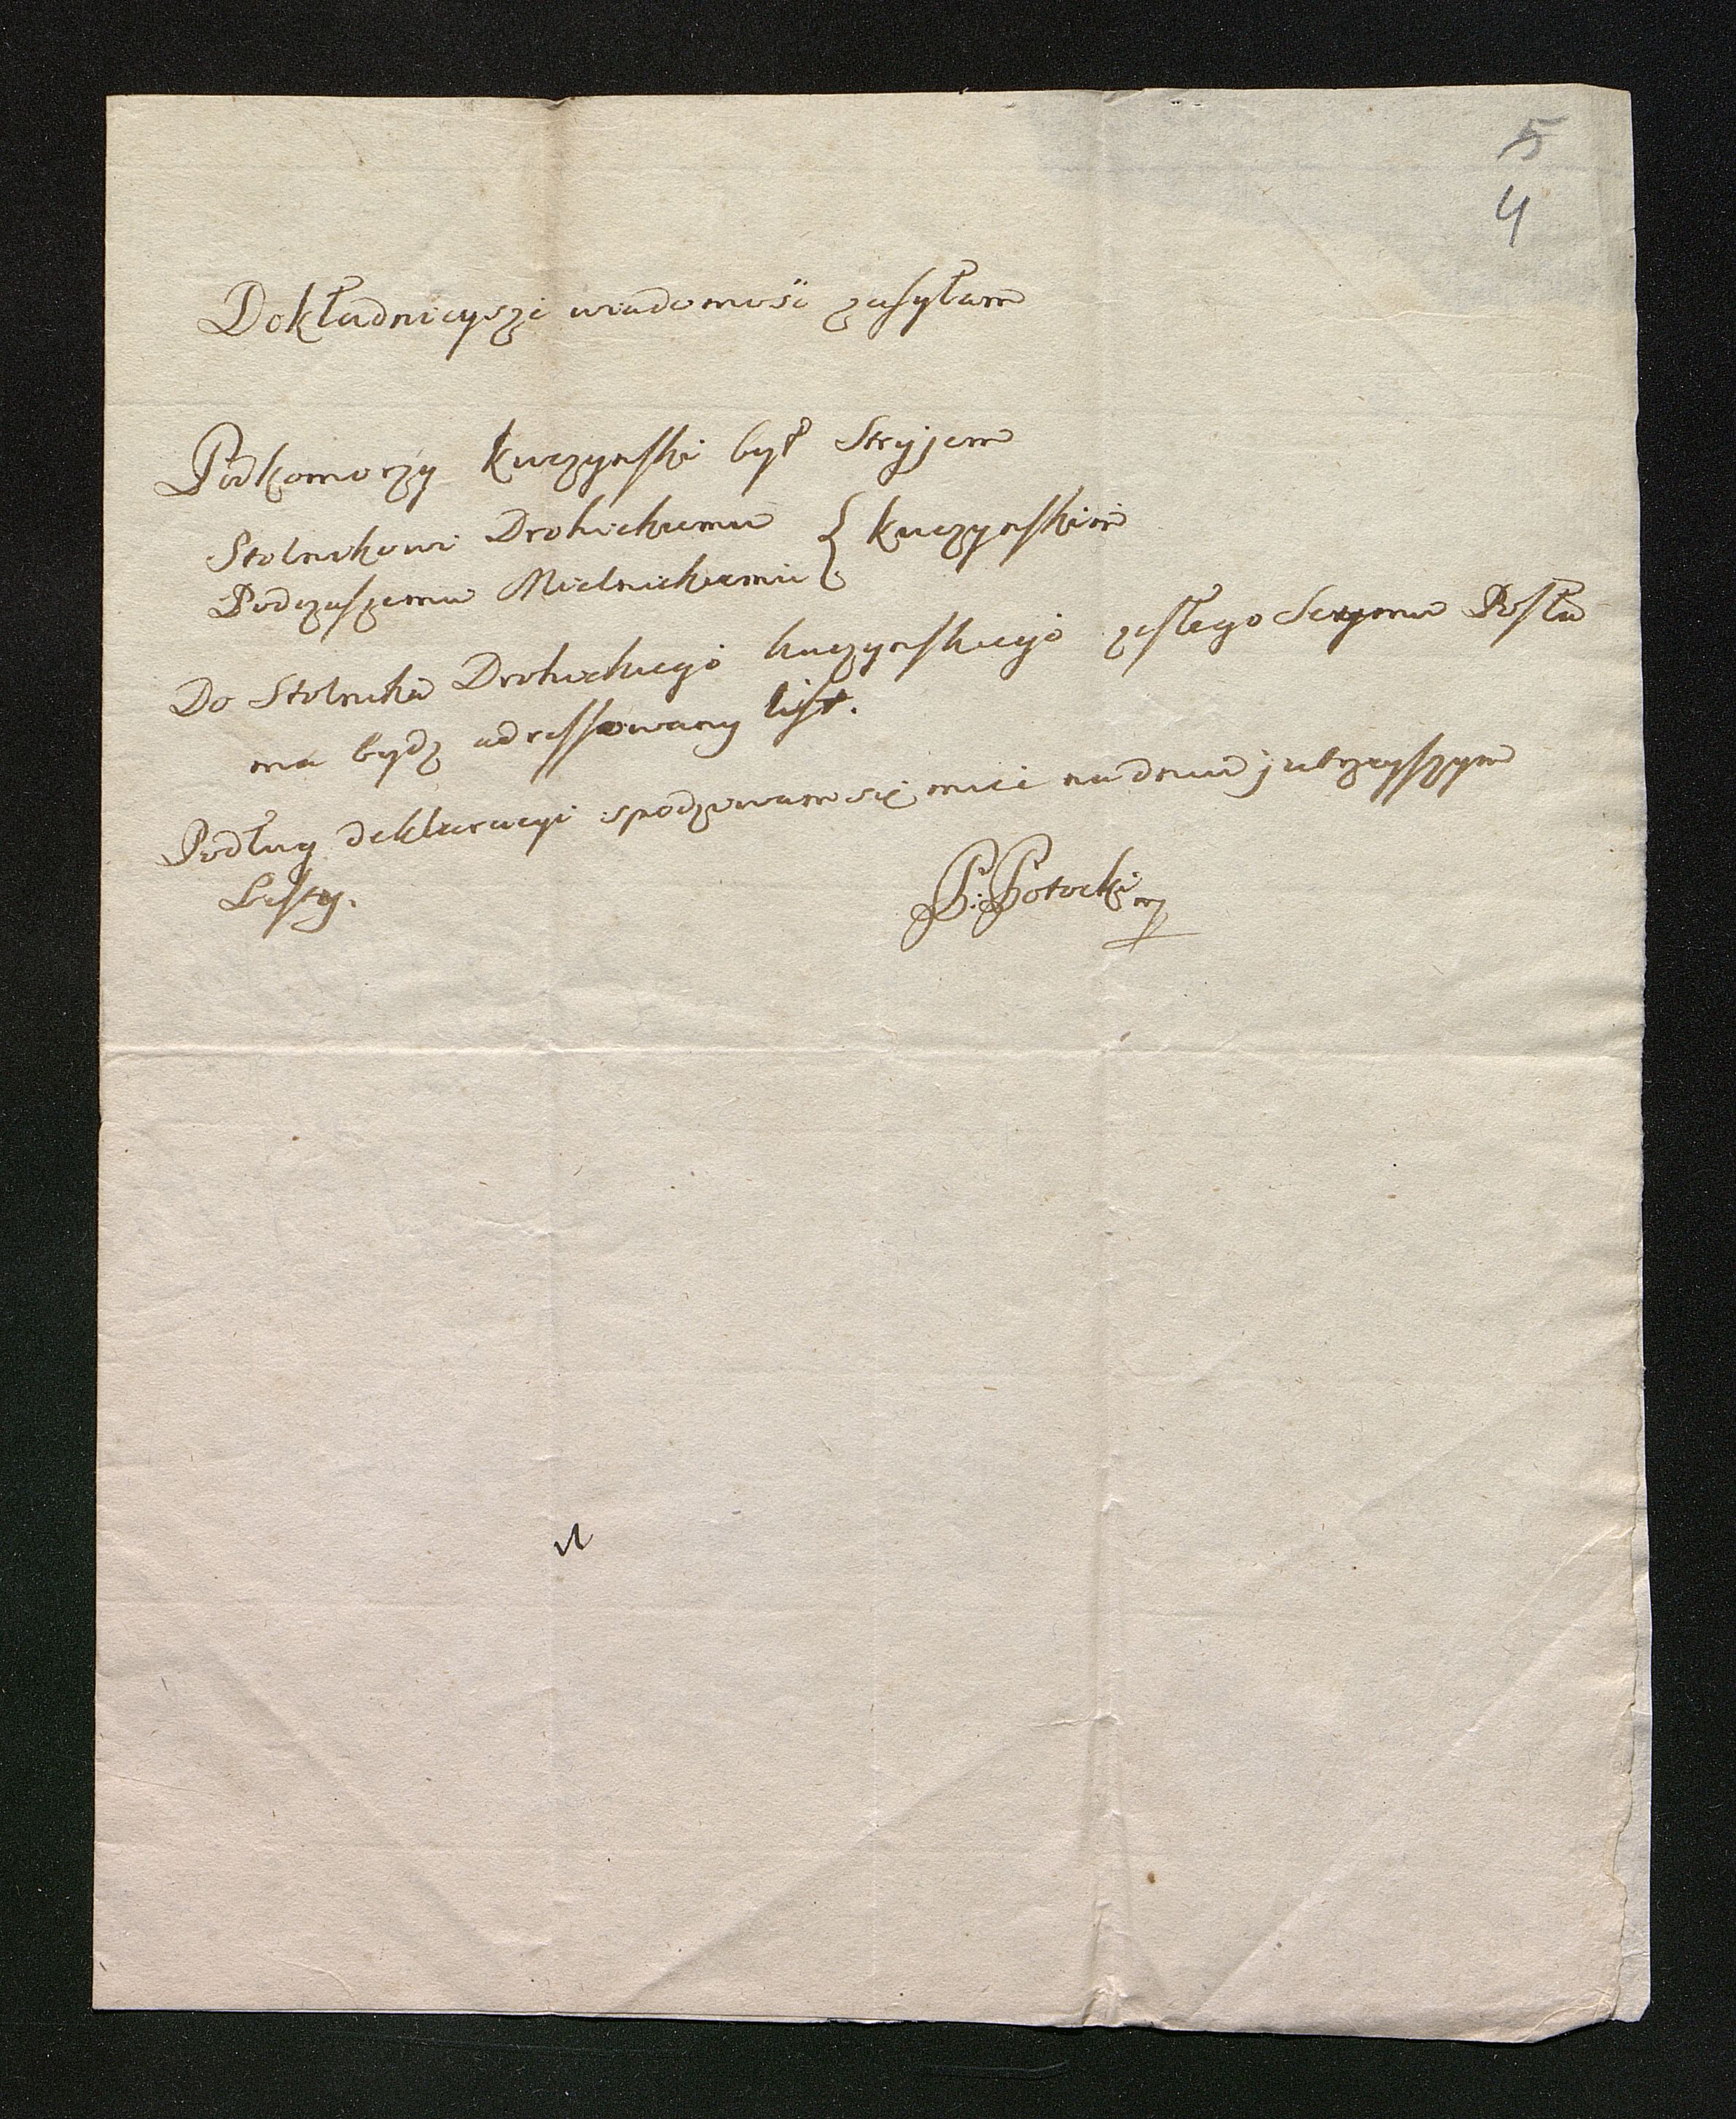 5
4
Dokładnieysze wiadomości zasyłam
Podkomorzy Kuczyński był Stryjem
Stolnikowi Drohickiemu { Kuczyńskim
Podczaszemu Mielnickiemu
Do Stolnika Drohickiego Kuczyńskiego zeszłego Seymu Posła
ma bydz adressowany list.
Podług deklaracyi spodziewam się mieć na dniu jutrzeyszym
Listy.
P: Potocki mp